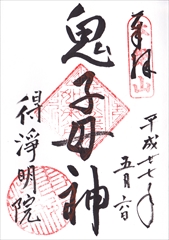 奉拝
平成廿七年
五月六日
鬼子母神
得浄明院